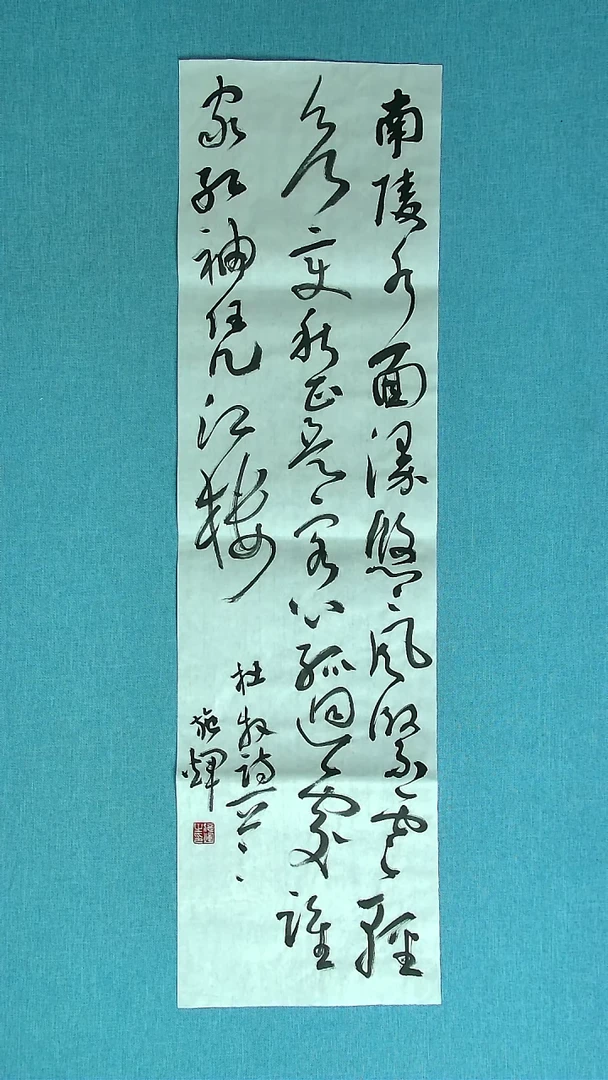 南陵水面漫悠々風緊雲輕
欲變秋正是客心孤迥處誰
家紅袖凭江樓
杜牧詩一首
施輝